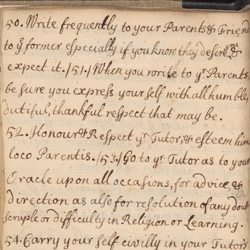 50. Write frequently to your Parents & Frien
to yᵉ former especially if you know they desire &
expect it. /51./ When you write to yʳ Parents
be sure you express your self with all humble
dutiful, thankful respect that may be.
52. Honour & Respect yʳ Tutor, & esteem him
loco Parentis. /53./ Go to yʳ Tutor as to your
Oracle upon all occasions, for advice &
direction as also for resolution of any dou
scruple or difficulty in Religion or Learning.
54. Carry your self civilly in your Tutor